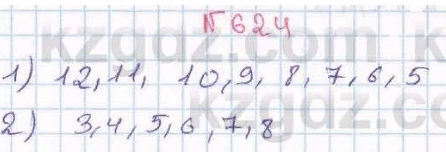 №624
1) 12, 11, 10, 9, 8, 7, 6, 5
2) 3, 4, 5, 6, 7, 8
kzgdz.com
kzgdz.com